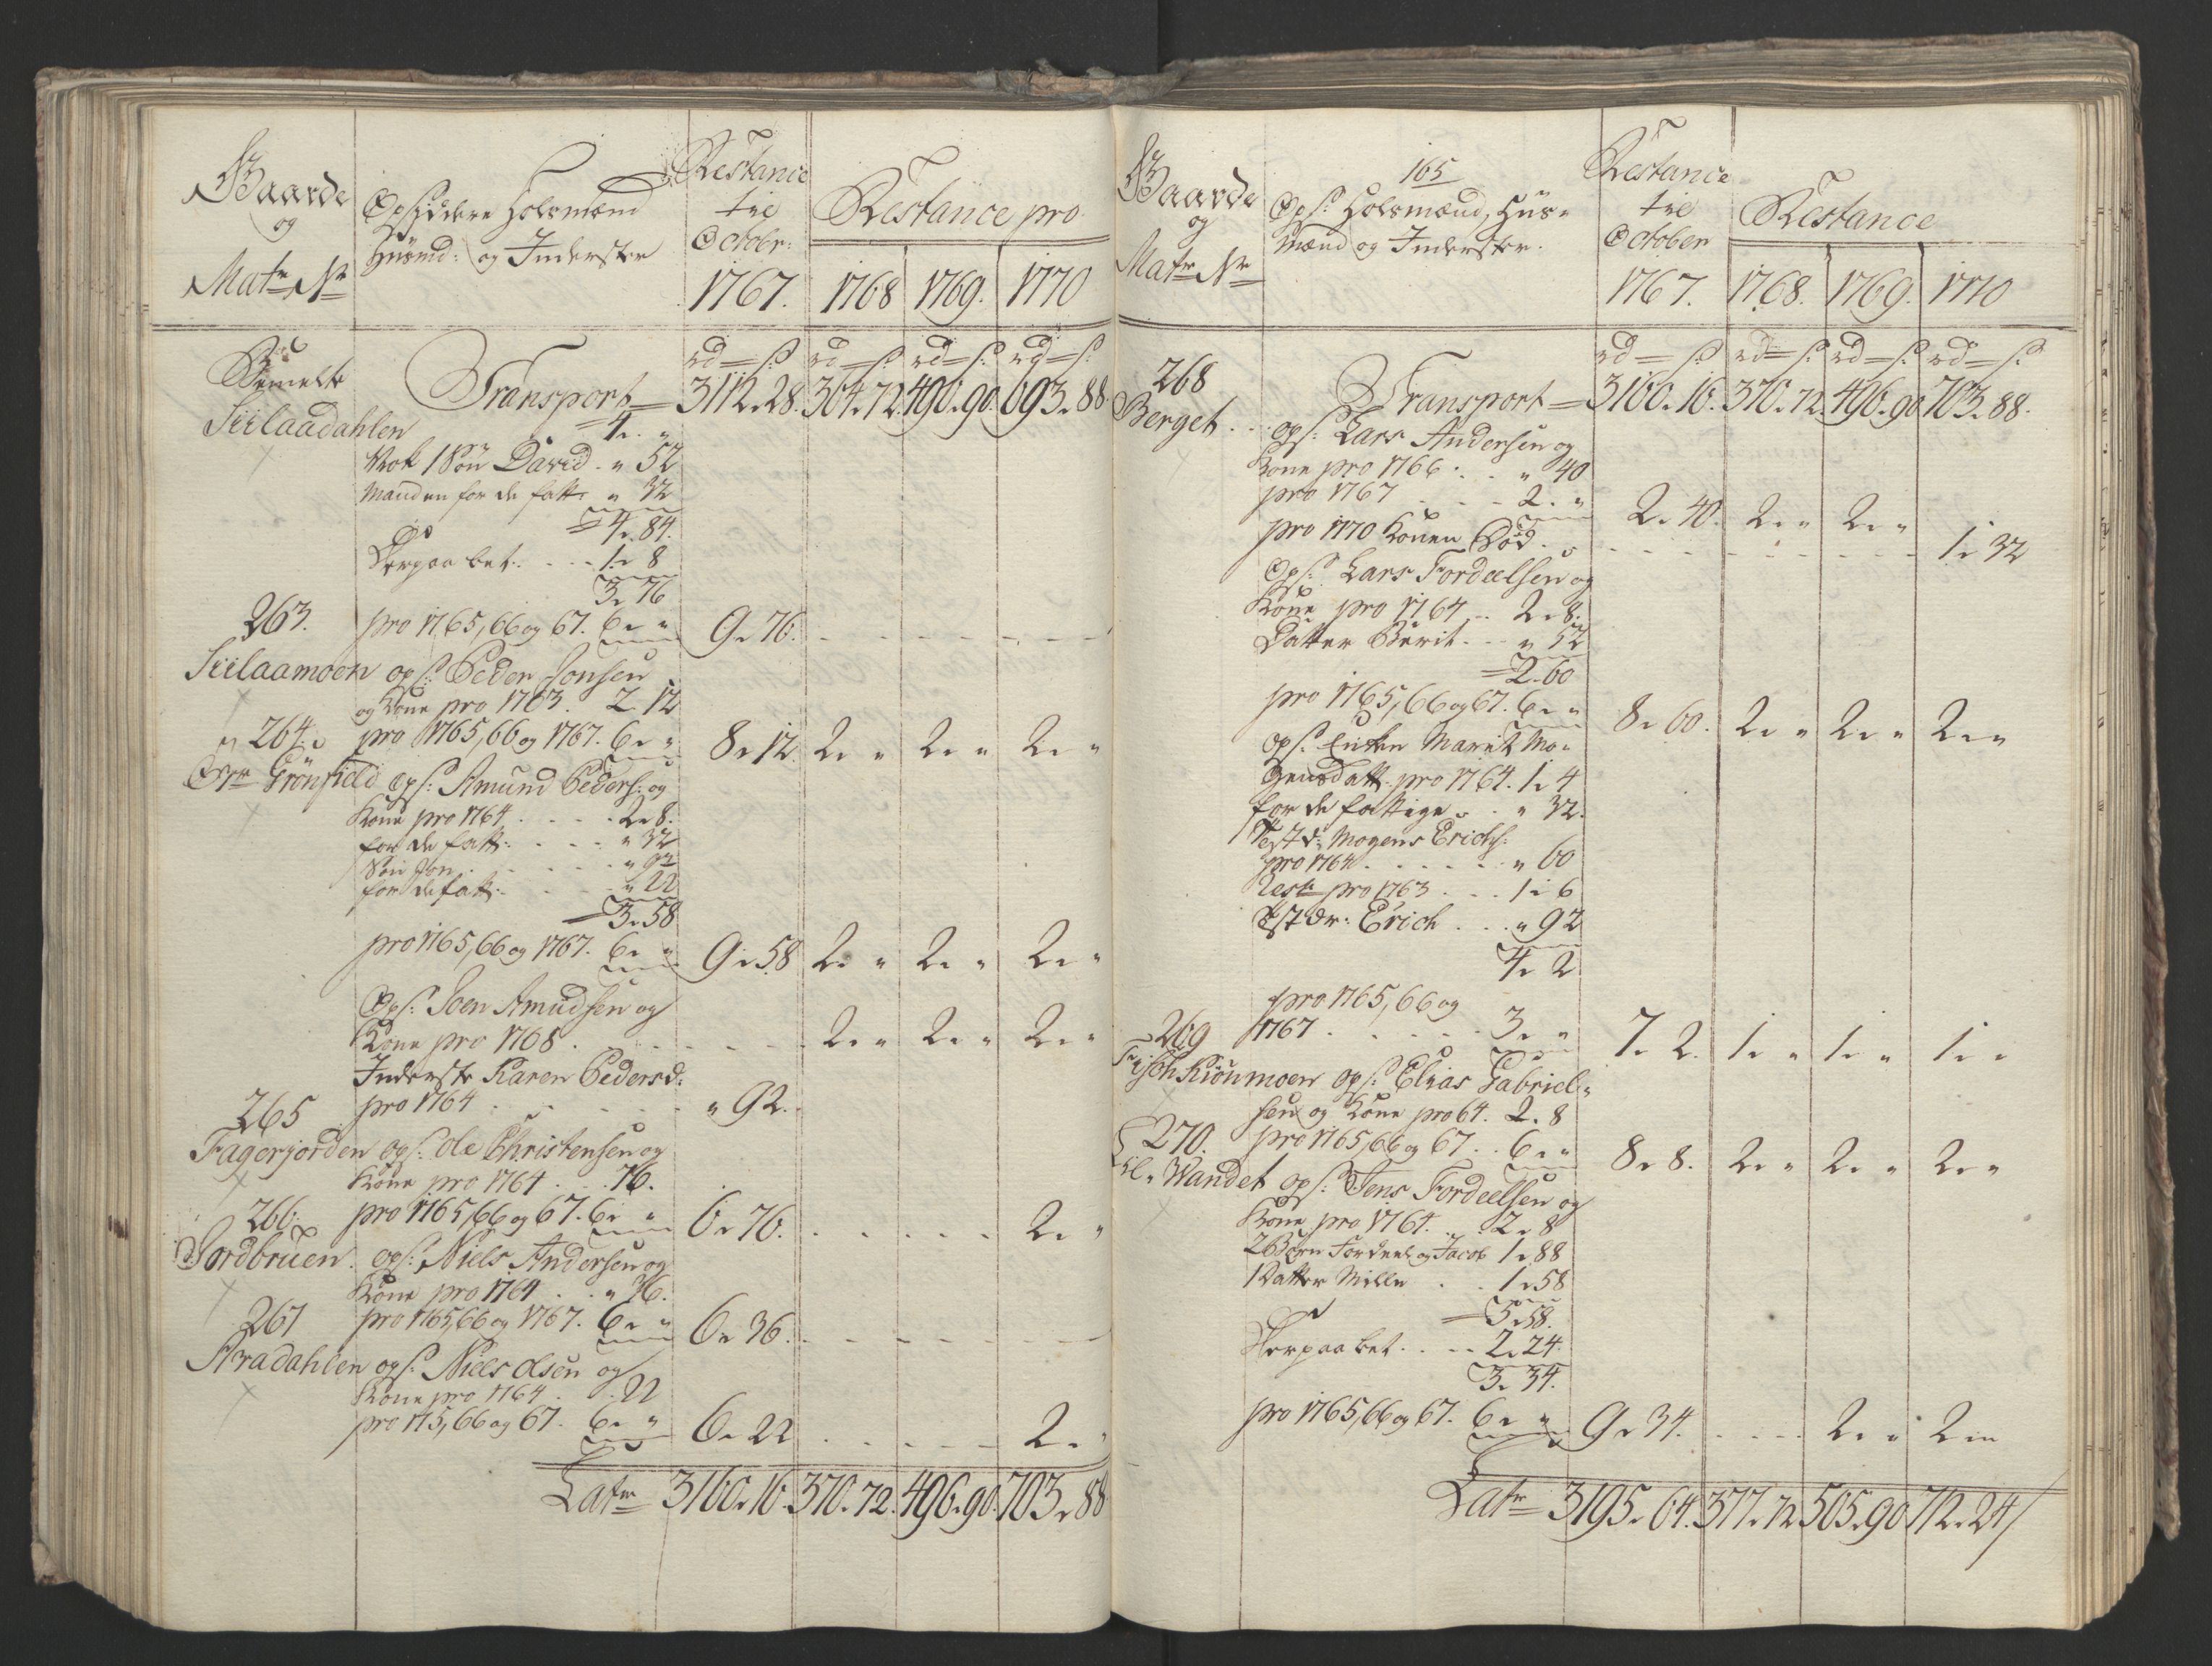 Gaarde
og
Matr Nr
Opsiddere Holsmænd
Huusmd: og Inderster
Restance
til
Octobr:
1767.
Restance pro
1768 1769. 1770
rd s: rd s: rd s: rd s:
Bemelte
Siilaadahlen
Transport 3112. 28. 364. 72. 490. 90. 693. 88.
4. "
Nok 1 Søn David . " 52
Manden for de fatt: " 32
4. 84.
Derpaa bet: . . . 1. 8
3. 76
263. pro 1765, 66 og 67. 6. " 9. 76. . . .
Siilaamoen ops: Peder Jonsen
og Kone pro 1763. 2. 12
264. pro 1765, 66 og 1767. 6. " 8. 12. 2. " 2. " 2. "
Grønfield ops: Amund Peders: og
Kone pro 1764 . . . . 2. 8.
for de fatt: . . . . " 32
Søn Jon . . . . " 92
for de fatt: . . . . " 22
3. 58
pro 1765, 66 og 1767. 6. " 9. 58 2. " 2. " 2. "
Ops: Joen Amudsen og
Kone pro 1768 . . . . 2. " 2. " 2. "
Inderste Karen Pedersd:
265 pro 1764 . . . . " 92.
Fagerjorden ops: Ole Christensen og
Kone pro 1764 . . . 76.
266. pro 1765, 66 og 67. 6. " 6. 76. . . . . 2. "
Jordbruen. ops: Niels Andersen og
Kone pro 1764 . . " 36.
267 pro 1765, 66 og 1767. 6. " 6. 36. . . .
Straadahlen ops: Niels Olsen og
Kone pro 1764 . . 22
pro 175, 66 og 67. 6. " 6. 22 . . . . 2. "
Latr 3160. 16. 370. 72. 496. 90. 703. 88
Gaarde
og
Matr Nr
165
Ops: Holsmænd, Huus=
mænd og Inderster.
Restance
til
October
1767.
Restance
1768. 1769. 1770
rd s: rd s: rd s: rd s:
268
Berget . .
Transport 3160. 16. 370. 72. 496. 90 703. 88.
ops: Lars Andersen og
Kone pro 1766 . . " 40
pro 1767 . . . 2. " 2. 40. 2. " 2. "
pro 1770 Konen Død . . . . 1. 32
Ops: Lars Fordeelsen og
Kone pro 1764 . . 2. 8.
Datter Berit . . " 52
2. 60
pro 1765, 66 og 67. 6. " 8. 60. 2. " 2. " 2. "
ops: Enken Marit Mo=
gensdatt. pro 1764. 1. 4
for de fattige . . " 32.
Mogens Erichs:
pro 1764 . . . . " 60
Rest pro 1763 . . . 1. 6
Erich . . . " 92
4. 2
pro 1765, 66 og
1767 . . . . 3. " 7. 2. 1. " 1. " 1. "
269
Kiønmoen ops: Elias Gabriel=
sen og Kone pro 64. 2. 8
270. pro 1765, 66 og 67 . . 6. " 8. 8. 2. " 2. " 2. "
Wandet ops: Jens Fordeelsen og
Kone pro 1764. . 2. 8
2 Børn Fordeel og Jacob 1. 88
1 Datter Mille . . 1. 58
5. 58.
Derpaa bet. . . . 2. 24.
3. 34.
pro 1765, 66 og 67. 6. " 9. 34. . . . 2. " 2. "
Latr 3195. 64. 377. 72 505. 90 712. 24